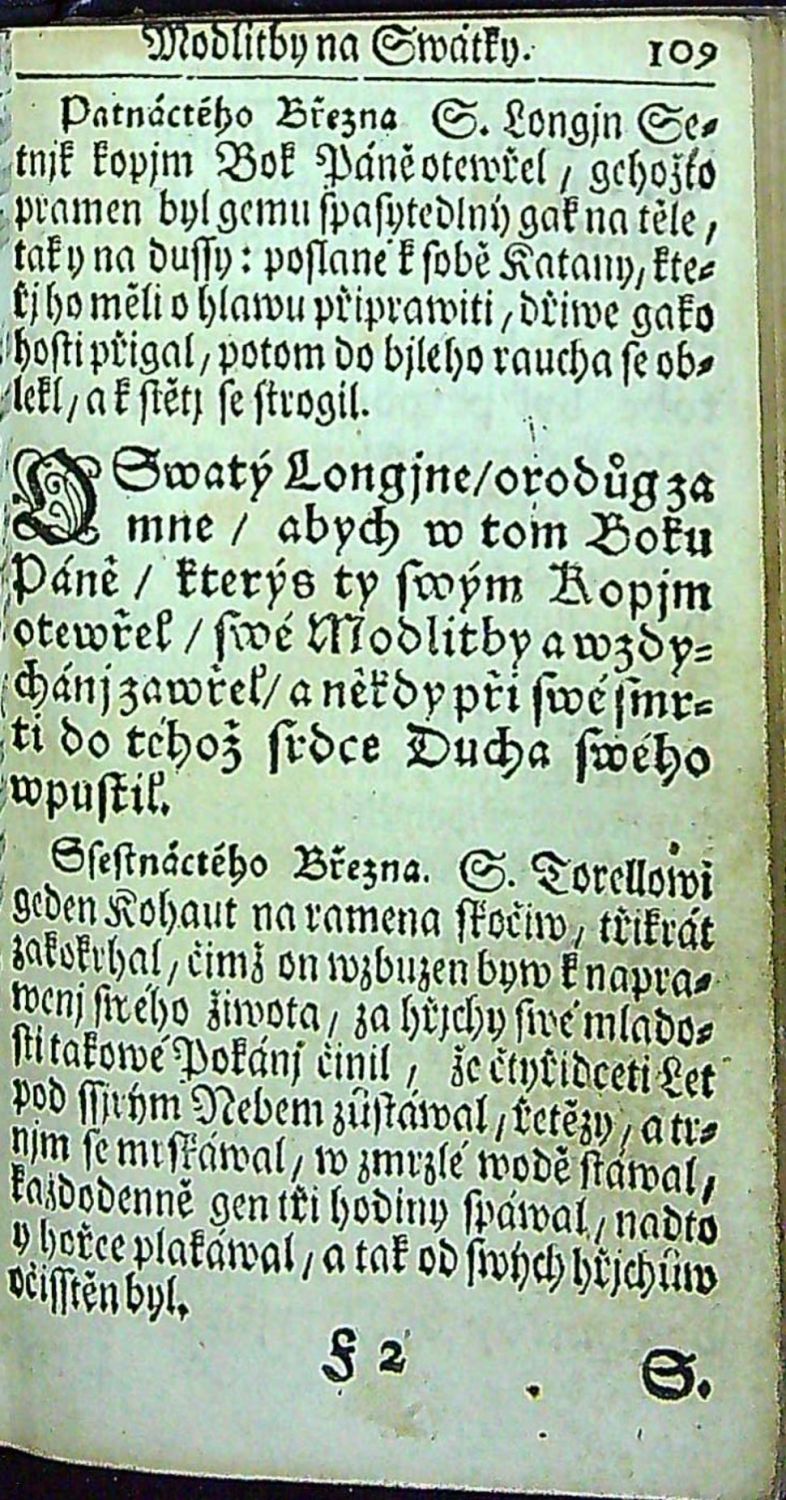 Modlitby na Swátky. 109
Patnáctého Března S. Longjn Se-
tnjk kopjm Bok Páně otewřel / gehožto
pramen byl gemu spasytedlný gak na těle /
tak y na dussy : poslané k sobě Katany, kte-
řj ho měli o hlawu připrawiti / dřiwe gako
hosti přigal / potom do bjlého raucha se ob-
lekl / a k stětj se strogil.
O Swatý Longjne / oroduůg za
mne / abych w tom Boku
Páně / kterýs ty swým Kopjm
otewřel / swé Modlitby a wzdy-
chánj zawřel / a někdy při swé smr-
ti do téhož srdce Ducha swého
wpustil.
Ssestnáctého Března. S. Torellowi
geden Kohaut na ramena skočiw / třikrát
zakokrhal / čimž on wzbuzen byw k napra-
wenj swého žiwota / za hřjchy swé mlado-
sti takowé Pokánj činil / že čtyřidceti Let
pod ssirým Nebem zůstáwal / řetězy / a tr-
njm se mrskáwal / w zmrzlé wodě stáwal /
každodenně gen tři hodiny spáwal / nadto
y hořce plakáwal / a tak od swých hřjchůw
očisstěn byl.
§ 2 S.